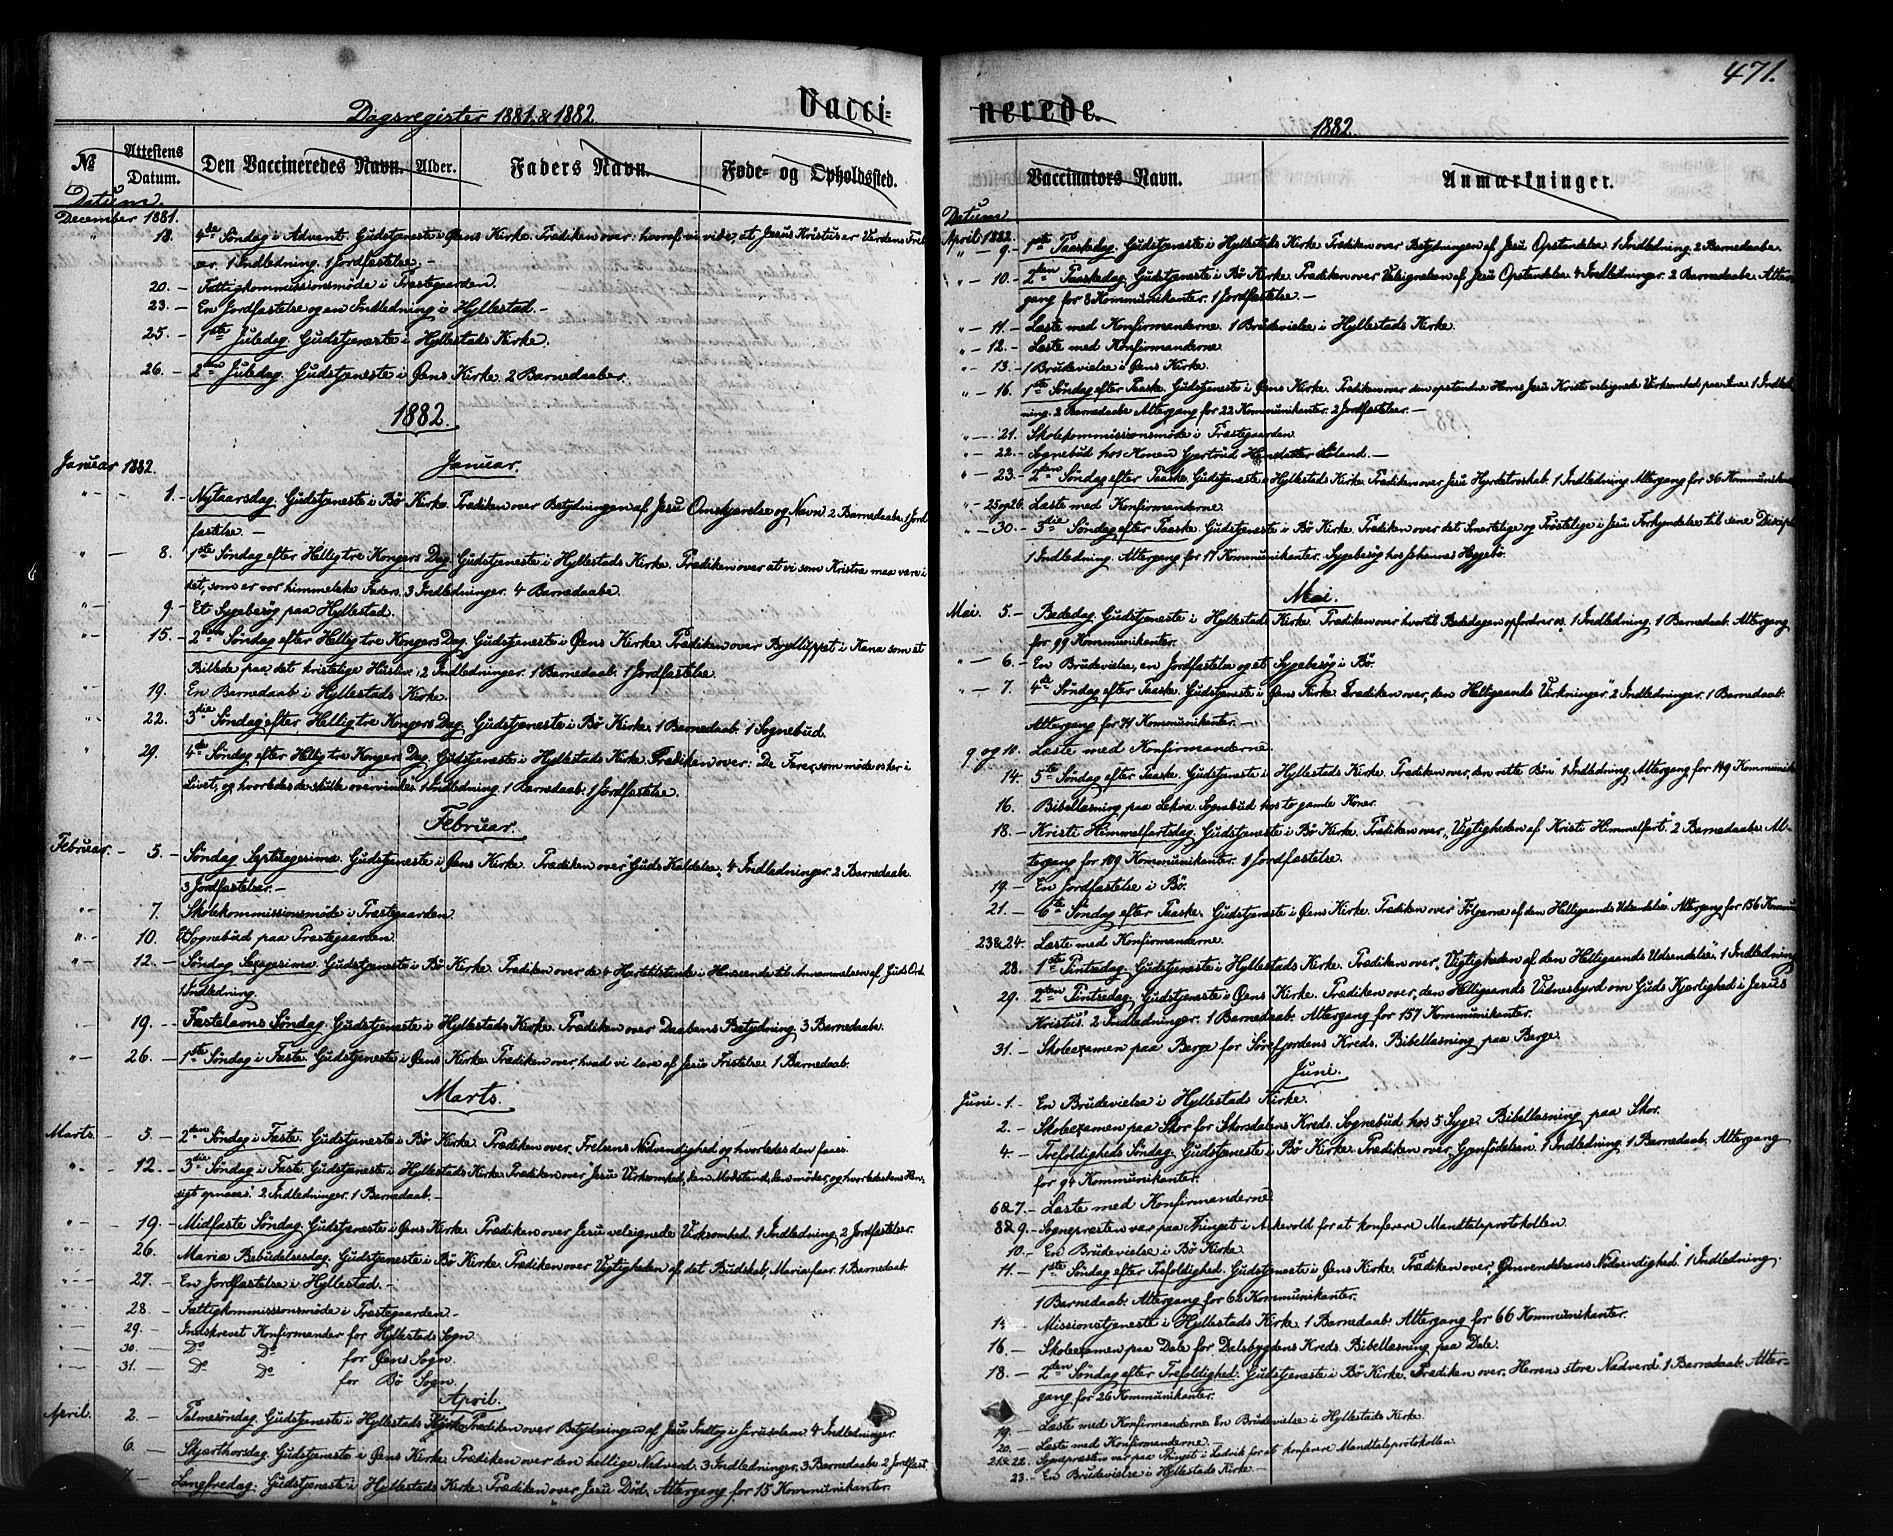 Dagsregister 1881 & 1882.
Vacci-
№
Attestens Datum.
Den Vaccineredes Navn.
Alder.
Faders Navn.
Føde- og Opholdssted.
Datum.
December 1881.
" 18. 4de Søndag i Advent. Gudstjeneste i Øens Kirke. Prædiken over: hvoraf vi vide, at Jesus Kristus er Verdens Frel-
ser. 1 Indledning. 1 Jordfæstelse. –
20. – Fattigkommissionsmøde i Præstegaarden.
23. – En Jordfæstelse og en Indledning i Hyllestad. –
25. – 1ste Juledag. Gudstjeneste i Hyllestads Kirke.
26. – 2den Juledag. Gudstjeneste i Øens Kirke. 2 Barnedaaber.
1882.
Januar 1882.
Januar.
" – 1. – Nytaarsdag. Gudstjeneste i Bø Kirke. Prædiken over Betydningen af Jesu Omskjærelse og Navn. 2 Barnedaabe. 1 Jord-
fæstelse. –
" – 8. 1ste Søndag efter Hellig tre Kongers Dag. Gudstjeneste i Hyllestads Kirke. Prædiken over at vi som Kristne maa være i
det, som er vor himmelske Faders. 3 Indledninger. 4 Barnedaabe.
" – 9 – Et Sygebesøg paa Hyllestad.
" – 15. – 2den Søndag efter Hellig tre Kongers Dag. Gudstjeneste i Øens Kirke. Prædiken over Bryllüppet i Kana som et
Billede paa det kristelige Huusliv. 2 Indledninger. 1 Barnedaab. 1 Jordfæstelse.
" 19. En Barnedaab i Hyllestads Kirke.
" 22. 3die Søndag efter Hellig tre Kongers Dag. Gudstjeneste i Bø Kirke. 1 Barnedaab. 1 Sognebud.
" 29. 4de Søndag efter Hellig tre Kongers Dag. Gudstjeneste i Hyllestads Kirke. Prædiken over: "De Farer, som møde os her i
Livet, og hvorledes de skulle overvindes". 1 Indledning. 1 Barnedaab. 1 Jordfæstelse.
Februar.
Februar. – 5. – Søndag Septuagesima. Gudstjeneste i Øens Kirke. Prædiken over Guds Kaldelse. 4 Indledninger. 2 Barnedaabe.
3 Jordfæstelser. –
" – 7. Skolekommissionsmøde i Præstegaarden.
" – 10. Et Sognebud paa Præstegaarden.
" – 12. – Søndag Sexagesima. Gudstjeneste i Bø Kirke. Prædiken over de 4 Hjertetilstande i Henseende til Annammelsen af Guds Ord.
1 Indledning.
19. – Fastelavns Søndag. Gudstjeneste i Hyllestads Kirke. Prædiken over Daabens Betydning. 3 Barnedaabe.
" – 26. – 1ste Søndag i Faste. Gudstjeneste i Øens Kirke. Prædiken over, hvad vi lære af Jesu Fristelse. 1 Barnedaab.
Marts.
Marts. – 5. – 2den Søndag i Faste. Gudstjeneste i Bø Kirke. Prædiken over, Frelsens Nødvendighed og hvorledes den faaes.
" – 12. – 3die Søndag i Faste. Gudstjeneste i Hyllestads Kirke. Prædiken over "Jesu Virksomhed, den Modstand, den møder, og hvorledes dens Hen-
sigt opnaaes". 2 Indledninger. 1 Barnedaab. –
" – 19. – Midfaste Søndag. Gudstjeneste i Øens Kirke. Prædiken over Jesu velsignede Virksomhed. 1 Indledning. 2 Jordfæstelser.
26. Mariæ Bebudelsesdag. Gudstjeneste i Bø Kirke. Prædiken over Vigtigheden af det Budskab, Maria faar. 1 Barnedaab.
27. – En Jordfæstelse i Hyllestad. –
28. – Fattigkommissionsmøde i Præstegaarden. –
29. – Indskrevet Konfirmander for Hyllestads Sogn.
30. – Do Do for Øens Sogn.
31. – Do Do for Bø Sogn.
April.
April. 2. – Palmesøndag. Gudstjeneste i Hyllestads Kirke. Prædiken over Betydningen af Jesu Indtog i Jerusalem. 4 Indledninger.
6. – Skjærthorsdag. Gudstjeneste i Øens Kirke. Prædiken over den hellige Nadverd. 3 Indledninger. 3 Barnedaabe. 2 Jordfæst.
7. – Langfredag. Gudstjeneste i Hyllestads Kirke. Prædiken over Jesu Død. Altergang for 15 Kommunikanter.
471.
nerede.
1882.
Vaccinators Navn.
Anmærkninger.
Datum
April 1882. 9. – 1ste Paaskedag. Gudstjeneste i Hyllestads Kirke. Prædiken over Betydningen af Jesu Opstandelse. 1 Indledning. 2 Barnedaabe.
" – 10. – 2den Paaskedag. Gudstjeneste i Bø Kirke. Prædiken over Velsignelsen af Jesu Opstandelse. 4 Indledninger. 2 Barnedaabe. Alter-
gang for 8 Kommunikanter. 1 Jordfæstelse. –
" – 11. – Læste med Konfirmanderne. 1 Brudevielse i Hyllestads Kirke.
" – 12. – Læste med Konfirmanderne.
" – 13. – 1 Brudevielse i Øens Kirke.
" – 16. 1ste Søndag efter Paaske. Gudstjeneste i Øens Kirke. Prædiken over den opstandne Herres Jesu Kristi velsignede Virksomhed paa Sine. 1 Indled-
ning. 2 Barnedaabe. Altergang for 22 Kommunikanter. 2 Jordfæstelser. –
" – 21. Skolekommissionsmøde i Præstegaarden.
" – 22. – Sognebud hos Konen Gjertrud Hansdatter Løland. –
" – 23. – 2den Søndag efter Paaske. Gudstjeneste i Hyllestads Kirke. Prædiken over Jesu Hyrdetroskab. 1 Indledning. Altergang for 36 Kommunikan
" – 25 og 26. Læste med Konfirmanderne.
" – 30. – 3die Søndag efter Paaske. Gudstjeneste i Bø Kirke. Prædiken over det Smertelige og Trøstelige i Jesu Forkyndelse til sine Discipl
1 Indledning. Altergang for 17 Kommunikanter. Sygebesøg hos Johannes Hyggebø.
Mai.
Mai. 5. – Bededag. Gudstjeneste i Hyllestads Kirke. Prædiken over hvortil Bededagen opfordrer os. 1 Indledning. 1 Barnedaab. Altergang
for 99 Kommunikanter.
" – 6. – En Brudevielse, en Jordfæstelse og et Sygebesøg i Bø.
" – 7. 4de Søndag efter Paaske. Gudstjeneste i Øens Kirke. Prædiken over "den Helligaands Virkninger". 2 Indledninger. 1 Barnedaab.
Altergang for 71 Kommunikanter. –
9 og 10. Læste med Konfirmanderne.
14. 5te Søndag efter Paaske. Gudstjeneste i Hyllestads Kirke. Prædiken over "den rette Bøn". 1 Indledning. Altergang for 149 Kommunik
16. Bibellæsning paa Lekva. Sognebud hos to gamle Koner.
18. – Kristi Himmelfartsdag. Gudstjeneste i Bø Kirke. Prædiken over "Vigtigheden af Kristi Himmelfart". 2 Barnedaabe. Al-
tergang for 109 Kommunikanter. 1 Jordfæstelse.
19. – En Jordfæstelse i Bø.
21. – 6te Søndag efter Paaske. Gudstjeneste i Øens Kirke. Prædiken over Følgerne af den Helligaands Udsendelse. Altergang for 156 Kommu
23 & 24. Læste med Konfirmanderne.
28. 1ste Pintsedag. Gudstjeneste i Hyllestads Kirke. Prædiken over "Vigtigheden af den Helligaands Udsendelse". 1 Indledning
29. 2den Pintsedag. Gudstjeneste i Øens Kirke. Prædiken over "den Helligaands Vidnesbyrd om Guds Kjærlighed i Jesus
Kristus". 2 Indledninger. 1 Barnedaab. Altergang for 157 Kommunikanter.
31. – Skoleexamen paa Berge for Sørefjordens Kreds. Bibellæsning paa Berge.
Juni.
Juni – 1. – En Brudevielse i Hyllestads Kirke.
2. – Skoleexamen paa Skor for Skorsdalens Kreds. Sognebud hos 5 Syge. Bibellæsning paa Skor.
4. – Trefoldigheds Søndag. Gudstjeneste i Bø Kirke. Prædiken over "Gjenfødelsen". 1 Indledning. 1 Barnedaab. Altergang
for 94 Kommunikanter.
6 & 7. – Læste med Konfirmanderne.
8 & 9. – Sognepræsten var paa Thinget i Askevold for at konferere Mandtalsprotokollen.
10. – En Brudevielse i Bø Kirke.
11. – 1ste Søndag efter Trefoldighed. Gudstjeneste i Øens Kirke. Prædiken over "Omvendelsens Nødvendighed". 1 Indledning.
1 Barnedaab. Altergang for 62 Kommunikanter.
14. – Missionstjeneste i Hyllestads Kirke. 1 Barnedaab. Altergang for 66 Kommunikanter.
16. – Skoleexamen paa Dale for Dalsbygdens Kreds. Bibellæsning paa Dale.
18. – 2den Søndag efter Trefoldighed. Gudstjeneste i Bø Kirke. Prædiken over "Herrens store Nadverd". 1 Barnedaab. Alter-
gang for 26 Kommunikanter.
19. – Læste med Konfirmanderne. En Brudevielse i Hyllestads Kirke.
20. – Læste med Konfirmanderne. –
21 & 22. Sognepræsten var paa Thinget i Ladvik for at konferere Mandtalsprotokollen.
23. – En Brudevielse i Hyllestads Kirke.